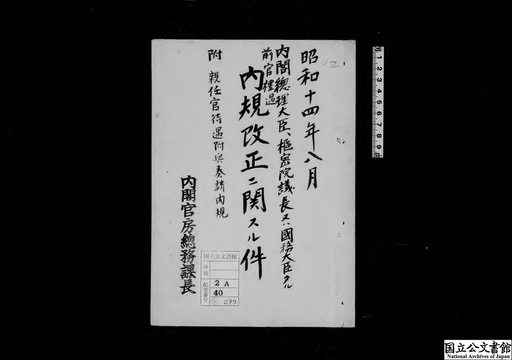 昭和十四年八月
内閣總理大臣、樞密院議長又ハ國務大臣タル
前官禮遇
内規改正ニ関スル件
附 親任官待遇附與奏請内規
内閣官房總務課長
国立公文書館
分類
配架番号
2 A
40
279
国立公文書館
National Archives of Japan